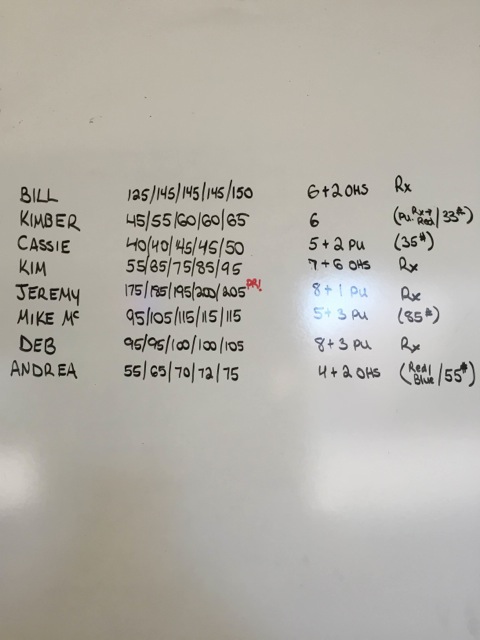 BILL 125/145/145/145/150 6+2 OHS Rx
KIMBER 45/55/60/60/65 6 (Pu: Rx→ Red/33#)
CASSIE 40/40/45/45/50 5+2 PU (35#)
KIM 55/65/75/85/95 7+6 OHS Rx
JEREMY 175/185/195/200/205 PR! 8+1 PU Rx
MIKE Mc 95/105/115/115/115 5+3 PU (85#)
DEB 95/95/100/100/105 8+3 PU Rx
ANDREA 55/65/70/72/75 4+2 OHS (Red/Blue/55#)